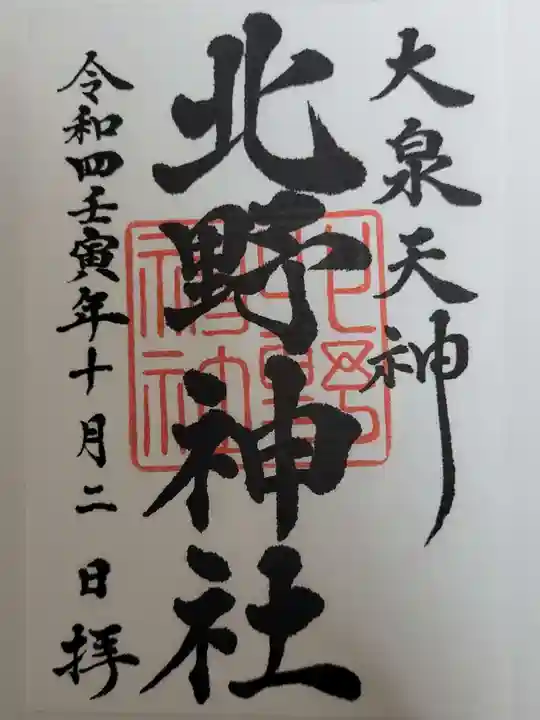 大泉天神
北野神社
北野神社
令和四壬寅年十月二日拝